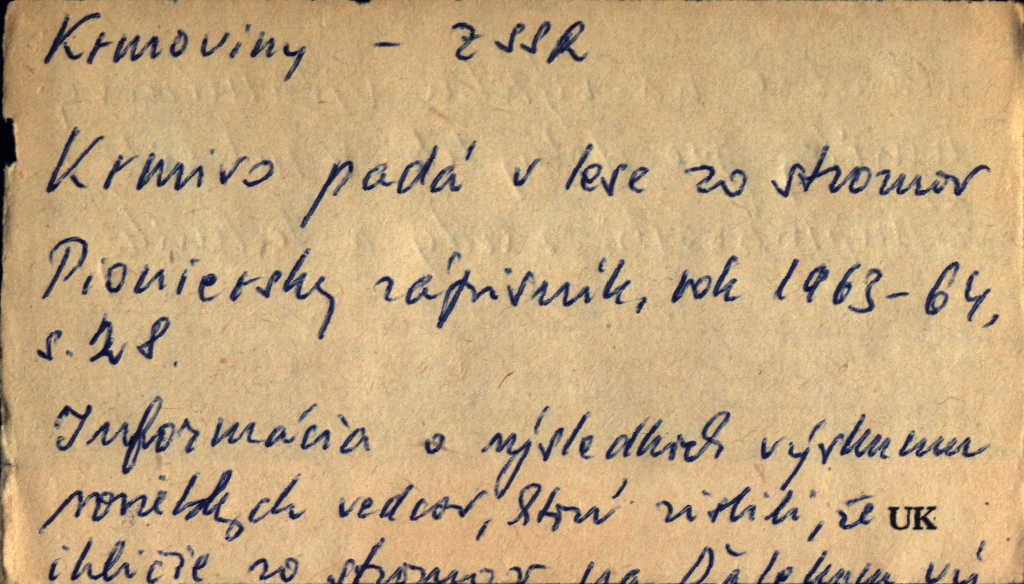 Krmoviny - ZSSR
Krmivo padá v lese zo stromov
Pioniersky zápisník, rok 1963-64,
s. 28.
Informácia o výsledkoch výskumu
sovietskych vedcov, ktorí zistili, že UK
ihličie zo stromov na Ďalekom vý